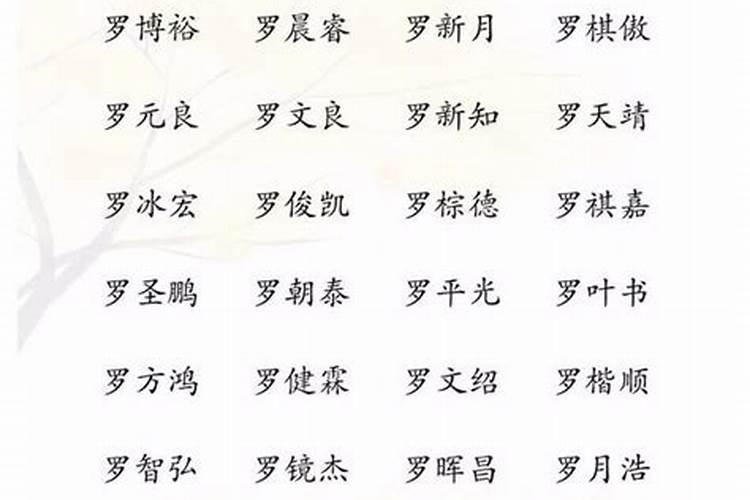 罗博裕 罗晨睿 罗新月 罗棋傲
罗元良 罗文良 罗新知 罗天靖
罗冰宏 罗俊凯 罗棕德 罗祺嘉
罗圣鹏 罗朝泰 罗平光 罗叶书
罗方鸿 罗健霖 罗文绍 罗楷顺
罗智弘 罗镜杰 罗晖昌 罗月浩